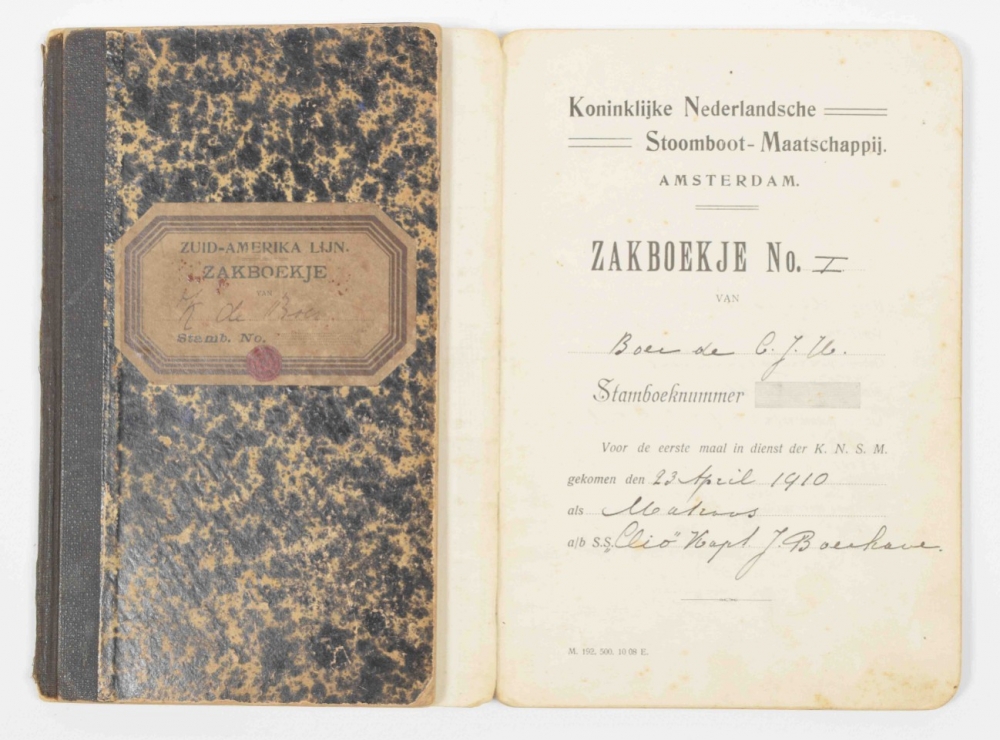 ZUID-AMERIKA LIJN.
ZAKBOEKJE
VAN
de Boer.
Stamb. No.
Koninklijke Nederlandsche
Stoomboot-Maatschappij.
AMSTERDAM.
ZAKBOEKJE No. I
VAN
Boer de C. J. H.
Stamboeknummer
Voor de eerste maal in dienst der K. N. S. M.
gekomen den 23 April 1910
als Matroos
a/b S.S. "Clio" Kapt. J. Boerhave.
M. 192. 500. 10 08 E.